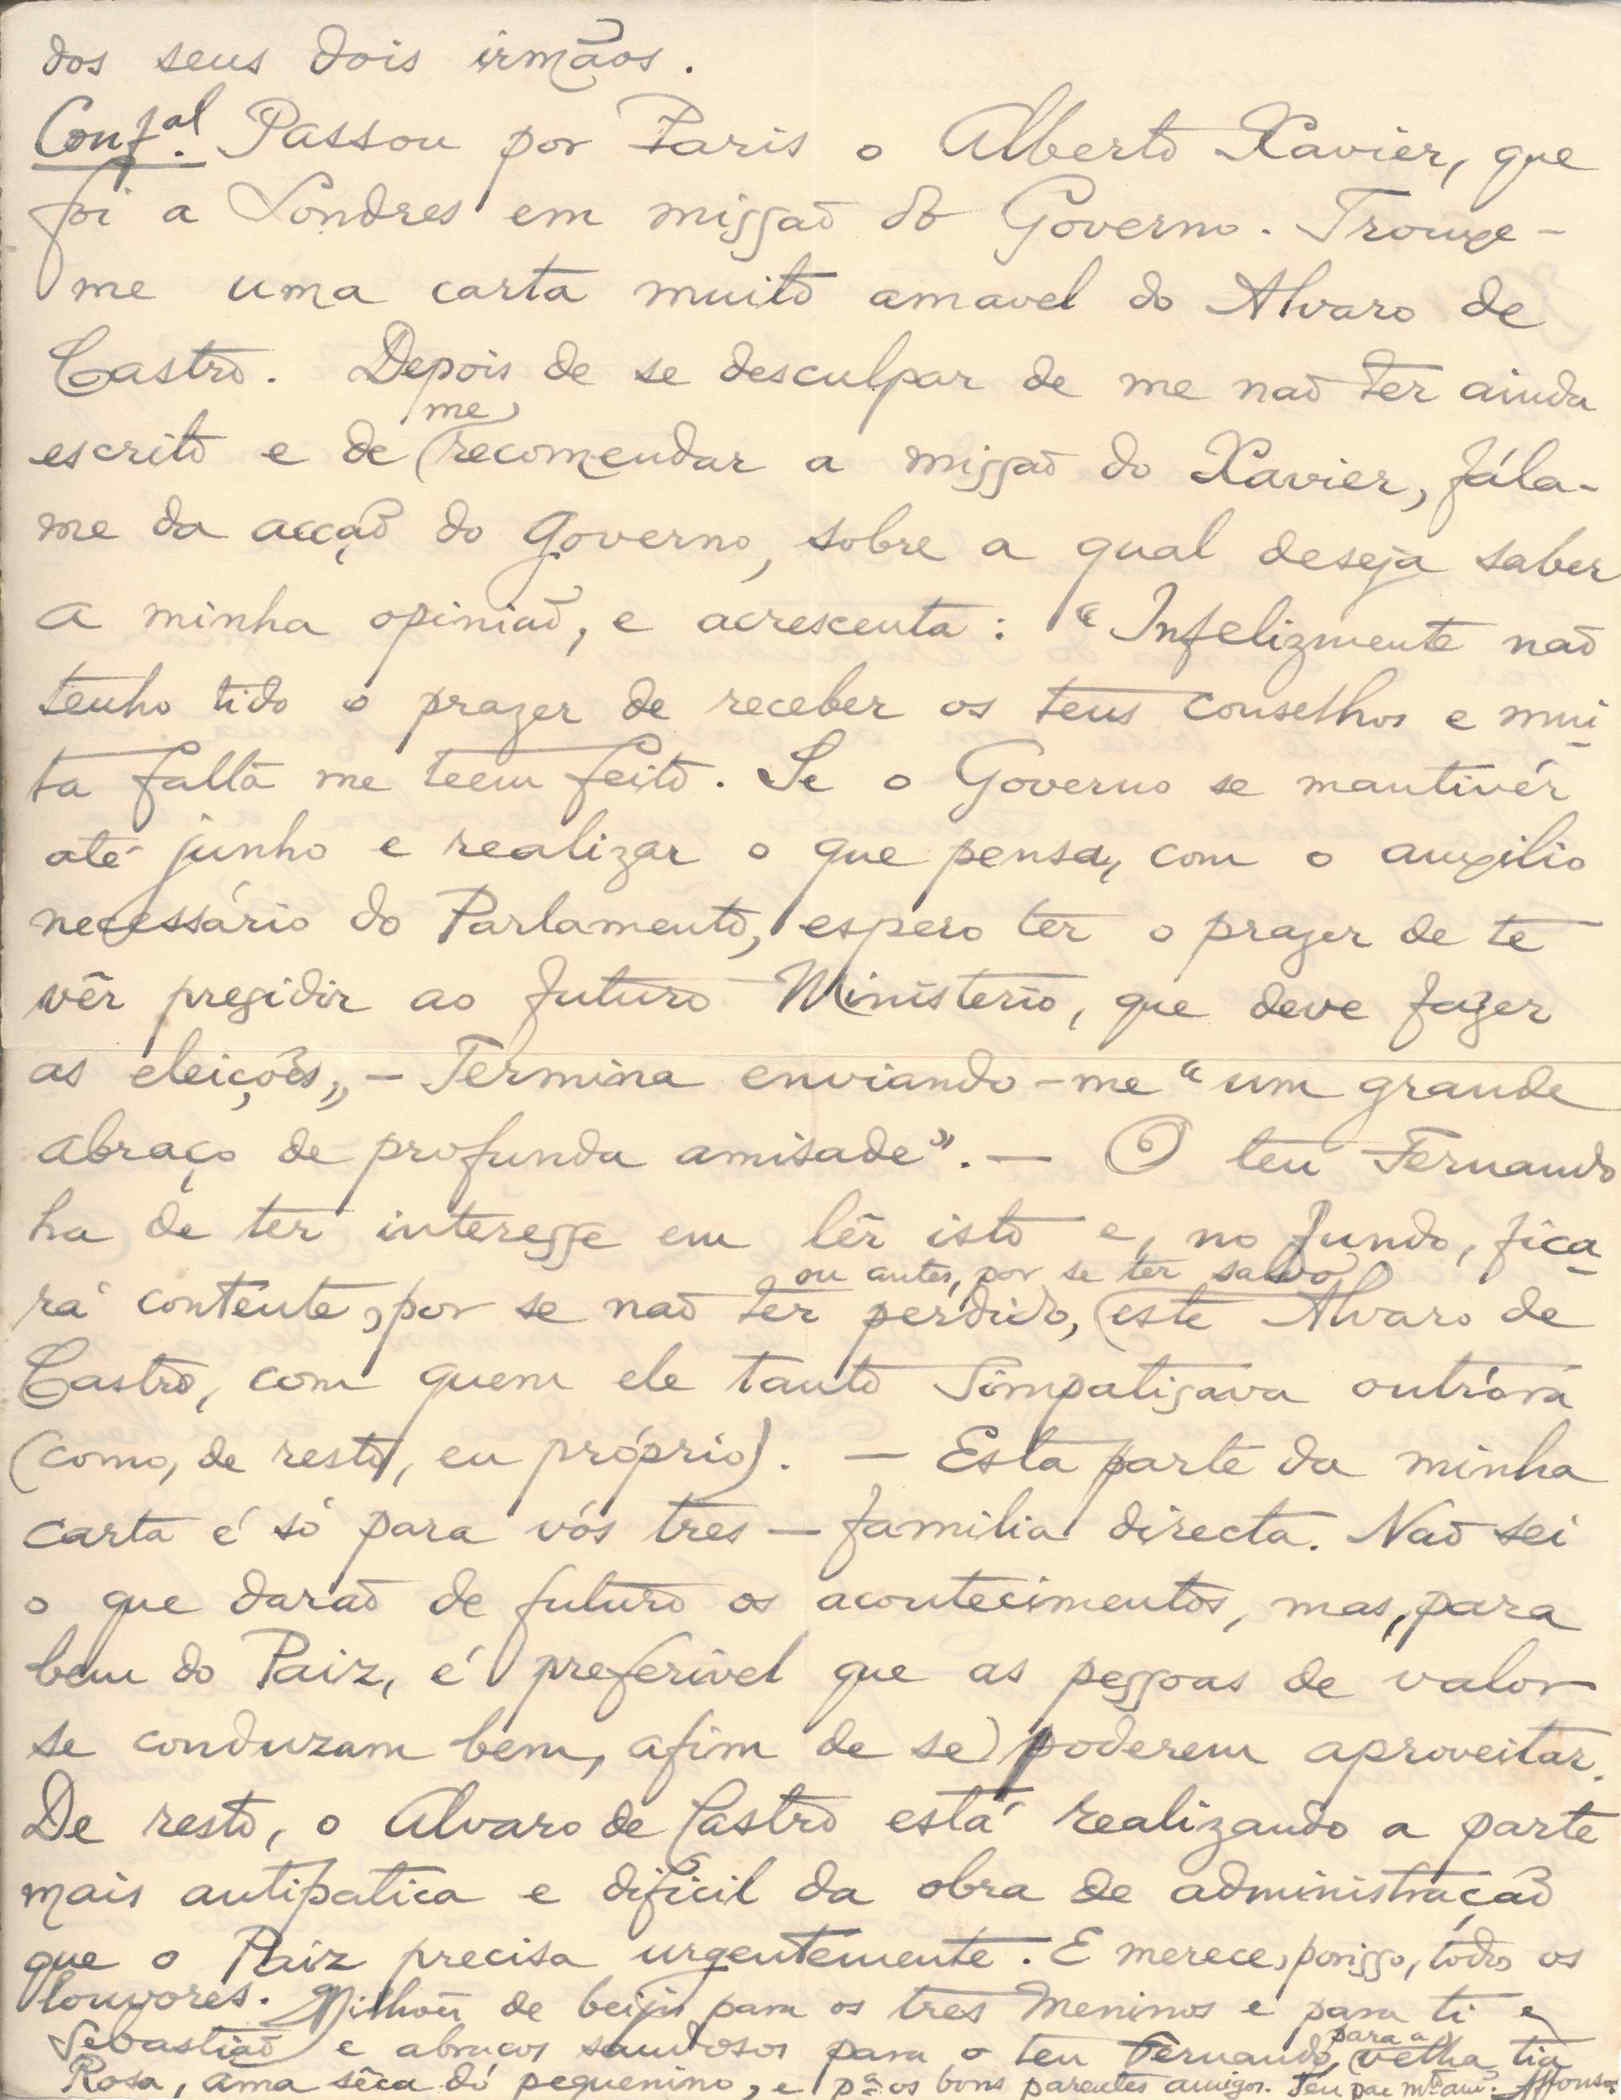 dos seus dois irmãos.
Conf.al Passou por Paris o Alberto Xavier, que
foi a Londres em missão do Governo. Trouxe-
me uma carta muito amavel do Alvaro de
Castro. Depois de se desculpar de me não ter ainda
me
escrito e de recomendar a missão do Xavier, fála-
me da acção do Governo, sobre a qual deseja saber
a minha opinião, e acrescenta: "Infelizmente não
tenho tido o prazer de receber os teus conselhos e mui-
ta falta me teem feito. Se o Governo se mantivér
até junho e realizar o que pensa, com o auxilio
necessário do Parlamento, espero ter o prazer de te
vêr presidir ao futuro Ministerio, que deve fazer
as eleições„ — Termina enviando-me "um grande
abraço de profunda amisade". — O teu Fernando
ha de ter interesse em lêr isto e, no fundo, fica-
ou antes, por se ter salvo
rá contente, por se não ter perdido, este Alvaro de
Castro, com quem ele tanto simpatisava outróra
(como, de resto, eu próprio). — Esta parte da minha
carta é só para vós tres — familia directa. Não sei
o que darão de futuro os acontecimentos, mas, para
bem do Paiz, é preferivel que as pessoas de valor
se conduzam bem, afim de se poderem aproveitar.
De resto, o Alvaro de Castro está realizando a parte
mais antipatica e dificil da obra de administração
que o Paiz precisa urgentemente. E merece, porisso, todos os
louvores. Milhões de beijos para os tres Meninos e para ti e
para a
Sebastião e abraços saudosos para o teu Fernando, velha tia
Rosa, ama sêca do pequenino, e pª os bons parentes amigos. Teu pae mtº amº Affonso